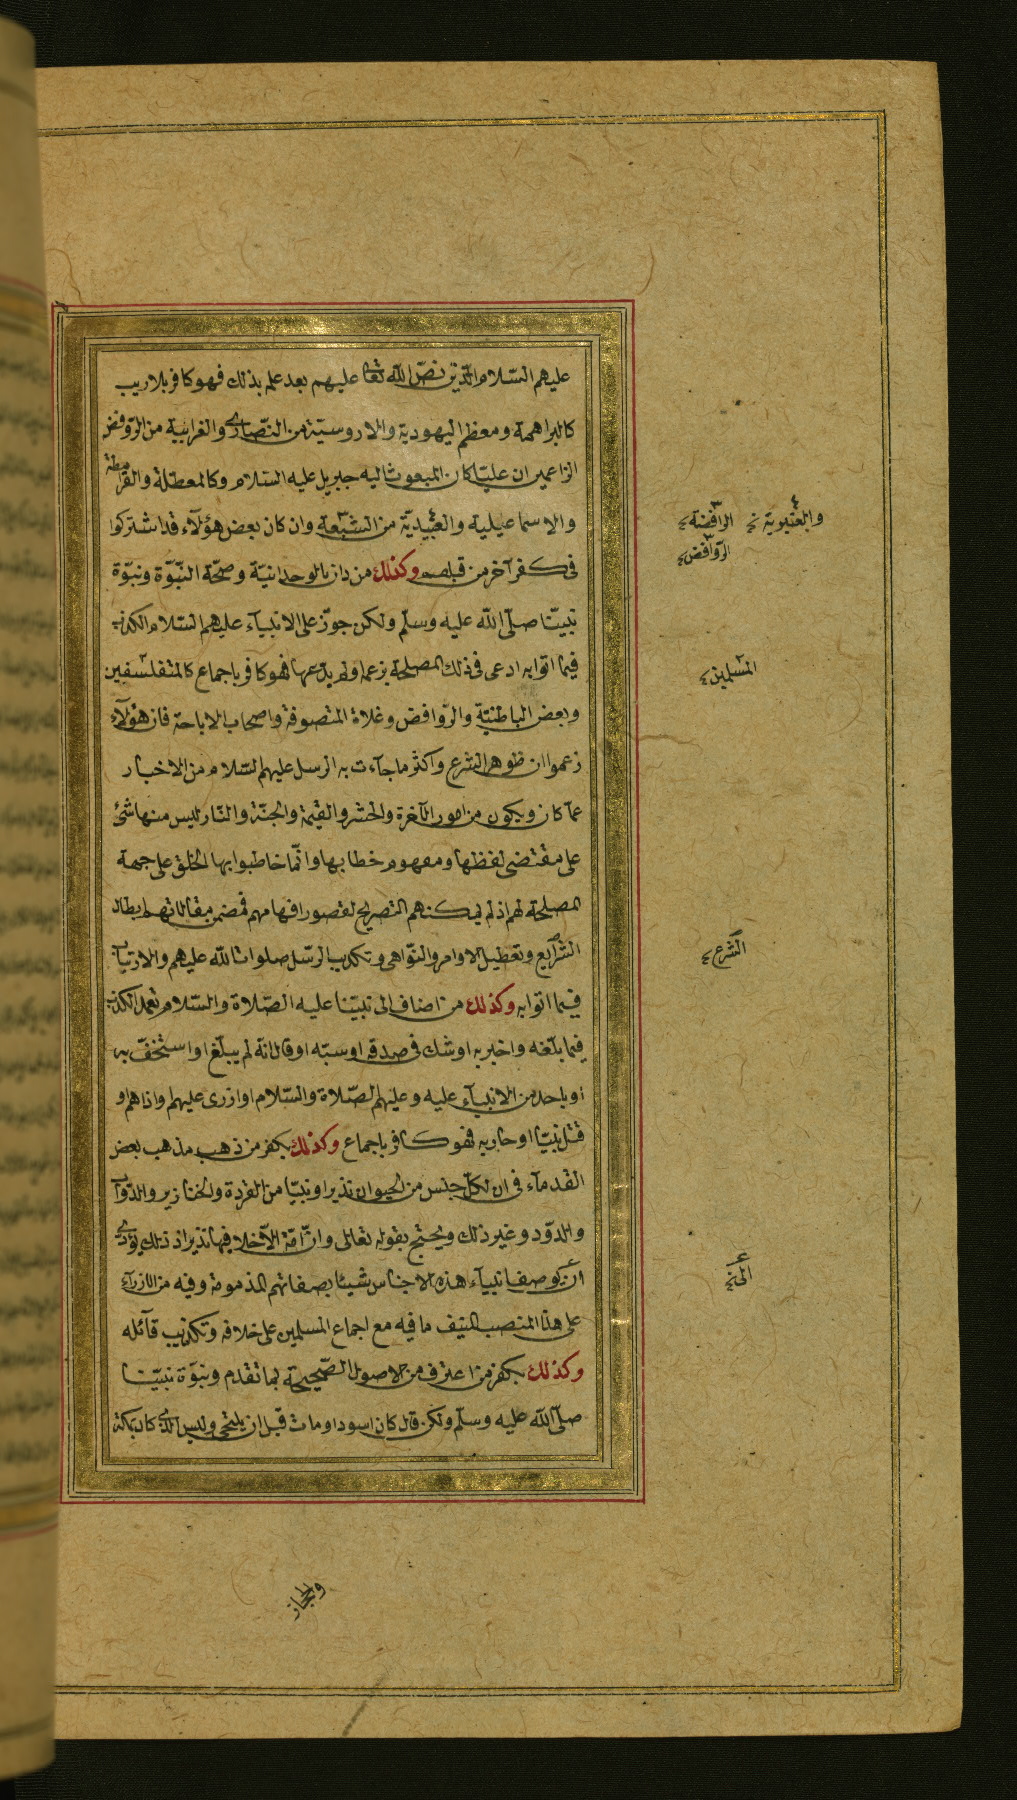 عليهم السّلام الّذين نصّ الله تعالى عليهم بعد علم بذلك فهو كافر بلاريب
كالبراهمة ومعظم اليهودية والاروسيّة من النّصارى والغرابية من الرّوافض
الزاعمين ان عليّا كان المبعوث اليه جبريل عليه السّلام وكالمعطّلة والقرامطة
والاسماعيلية والعبيديّة من الشيعة وان كان بعض هؤلآء قد اشتركوا
فى كفر آخر من قبلهم وكذلك من دان بالوحدانيّة وصحّة النّبوّة ونبوّة
نبيّنا صلّى الله عليه وسلّم ولكن جوّز على الانبيآء عليهم السّلام الكذب
فيما اتوا به ادعى فى ذلك المصلحة بزعمه او لم يدّعها فهو كافر باجماع كالمتفلسفين
وبعض الباطنيّة والرّوافض وغلاة المتصوفة واصحاب الاباحة فان هؤلآء
زعموا ان ظوهر الشرع واكثر ما جآءت به الرسل عليهم السّلام من الاخبار
عمّا كان ويكون من امور الآخرة والحشر والقيمة والجنّة والنّار ليس منها شئ
على مقتضى لفظها ومفهوم خطابها وانّما خاطبوا بها الخلق على جهة
المصلحة لهم اذ لم يمكنهم التصريح لقصور افهامهم فمضمن مقالاتهم ابطال
الشّرآيع وتعطيل الاوامر والنّواهى وتكذيب الرّسل صلوات الله عليهم والارتياب
فيما اتوا به وكذلك من اضاف الى نبيّنا عليه الصّلاة والسّلام تعمد الكذب
فيما بلّغه واخبر به او شك فى صدقه او سبّه او قال انه لم يبلّغ او استخفّ به
او باحد من الانبيآء عليه وعليهم الصّلاة والسّلام او ازرى عليهم او اذاهم او
قتل نبيّا او حاربه فهو كافر باجماع وكذلك يكفر من ذهب مذهب بعض
القدمآء فى ان لكلّ جنس من الحيوان نذيرا او نبيّا من القردة والخنازير والدّوآب
والدّود وغير ذلك ويحتج بقوله تعالى وان من امّة الّا خلا فيها نذير اذ ذلك يؤدى
ان يوصف انبيآء هذه الاجناس شيئا بصفاتهم المذمومة وفيه من الازرآء
على هذا المنصب المنيف ما فيه مع اجماع المسلمين على خلافه وتكذيب قآئله
وكذلك يكفر من اعترف من الاصول الصّحيحة بما تقدم ونبوّة نبيّنا
صلّى الله عليه وسلّم ولكن قال كان اسود او مات قبل ان يلتحى وليس الذى كان بمكة
والعنبرية الرافضة
الروافض
المسلمين
الشرع
والحجاز